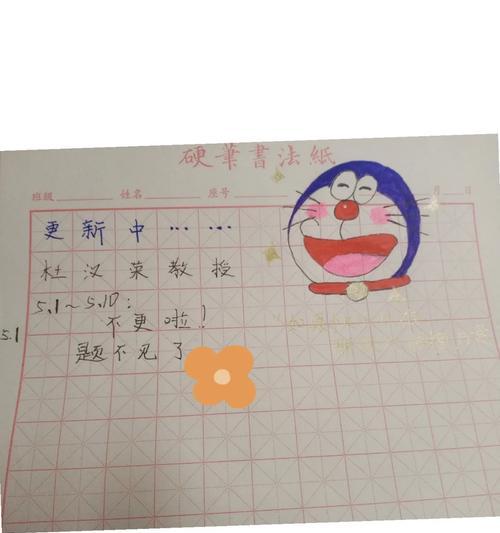 硬筆書法紙
班級 姓名 座号 月 日
更新中……
杜汉荣教授
5.1~5.10:
不更啦!
5.1
题不见了